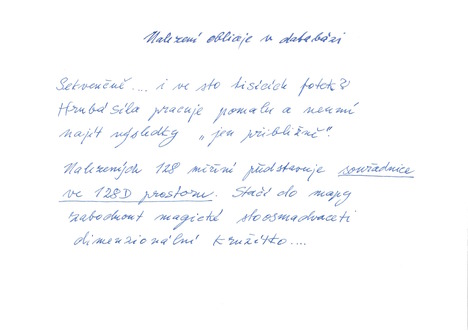 Nalezení obličeje v databázi
Sekvenčně.... i ve sto tisících fotek?
Hrubá síla pracuje pomalu a neumí
najít výsledky „jen přibližně".
Nalezených 128 měření představuje souřadnice
ve 128D prostoru. Stačí do mapy
zabodnout magické stoosmadvaceti
dimenzionální kružítko....